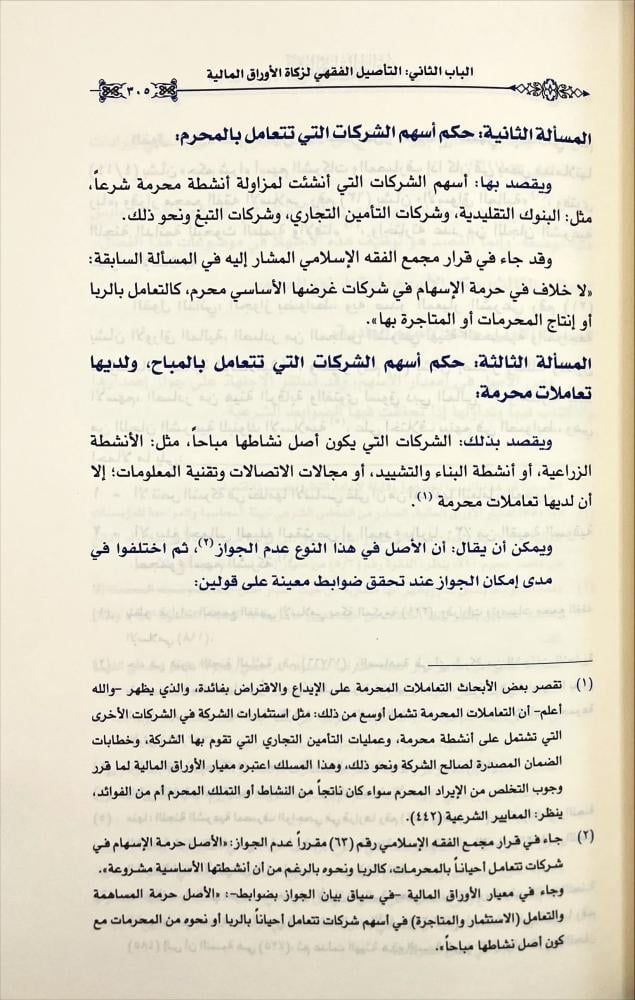 الباب الثاني: التأصيل الفقهي لزكاة الأوراق المالية
٣٠٥
المسألة الثانية: حكم أسهم الشركات التي تتعامل بالمحرم:
ويقصد بها: أسهم الشركات التي أنشئت لمزاولة أنشطة محرمة شرعاً،
مثل: البنوك التقليدية، وشركات التأمين التجاري، وشركات التبغ ونحو ذلك.
وقد جاء في قرار مجمع الفقه الإسلامي المشار إليه في المسألة السابقة:
«لا خلاف في حرمة الإسهام في شركات غرضها الأساسي محرم، كالتعامل بالربا
أو إنتاج المحرمات أو المتاجرة بها».
المسألة الثالثة: حكم أسهم الشركات التي تتعامل بالمباح، ولديها
تعاملات محرمة:
ويقصد بذلك: الشركات التي يكون أصل نشاطها مباحاً، مثل: الأنشطة
الزراعية، أو أنشطة البناء والتشييد، أو مجالات الاتصالات وتقنية المعلومات؛ إلا
أن لديها تعاملات محرمة (١).
ويمكن أن يقال: أن الأصل في هذا النوع عدم الجواز(٢)، ثم اختلفوا في
مدى إمكان الجواز عند تحقق ضوابط معينة على قولين:
(١) تقصر بعض الأبحاث التعاملات المحرمة على الإيداع والاقتراض بفائدة، والذي يظهر -والله
أعلم- أن التعاملات المحرمة تشمل أوسع من ذلك: مثل استثمارات الشركة في الشركات الأخرى
التي تشتمل على أنشطة محرمة، وعمليات التأمين التجاري التي تقوم بها الشركة، وخطابات
الضمان المصدرة لصالح الشركة ونحو ذلك، وهذا المسلك اعتبره معيار الأوراق المالية لما قرر
وجوب التخلص من الإيراد المحرم سواء كان ناتجاً من النشاط أو التملك المحرم أم من الفوائد،
ينظر: المعايير الشرعية (٤٤٢).
(٢) جاء في قرار مجمع الفقه الإسلامي رقم (٦٣) مقرراً عدم الجواز: «الأصل حرمة الإسهام في
شركات تتعامل أحياناً بالمحرمات، كالربا ونحوه بالرغم من أن أنشطتها الأساسية مشروعة».
وجاء في معيار الأوراق المالية -في سياق بيان الجواز بضوابط-: «الأصل حرمة المساهمة
والتعامل (الاستثمار والمتاجرة) في أسهم شركات تتعامل أحياناً بالربا أو نحوه من المحرمات مع
كون أصل نشاطها مباحاً».